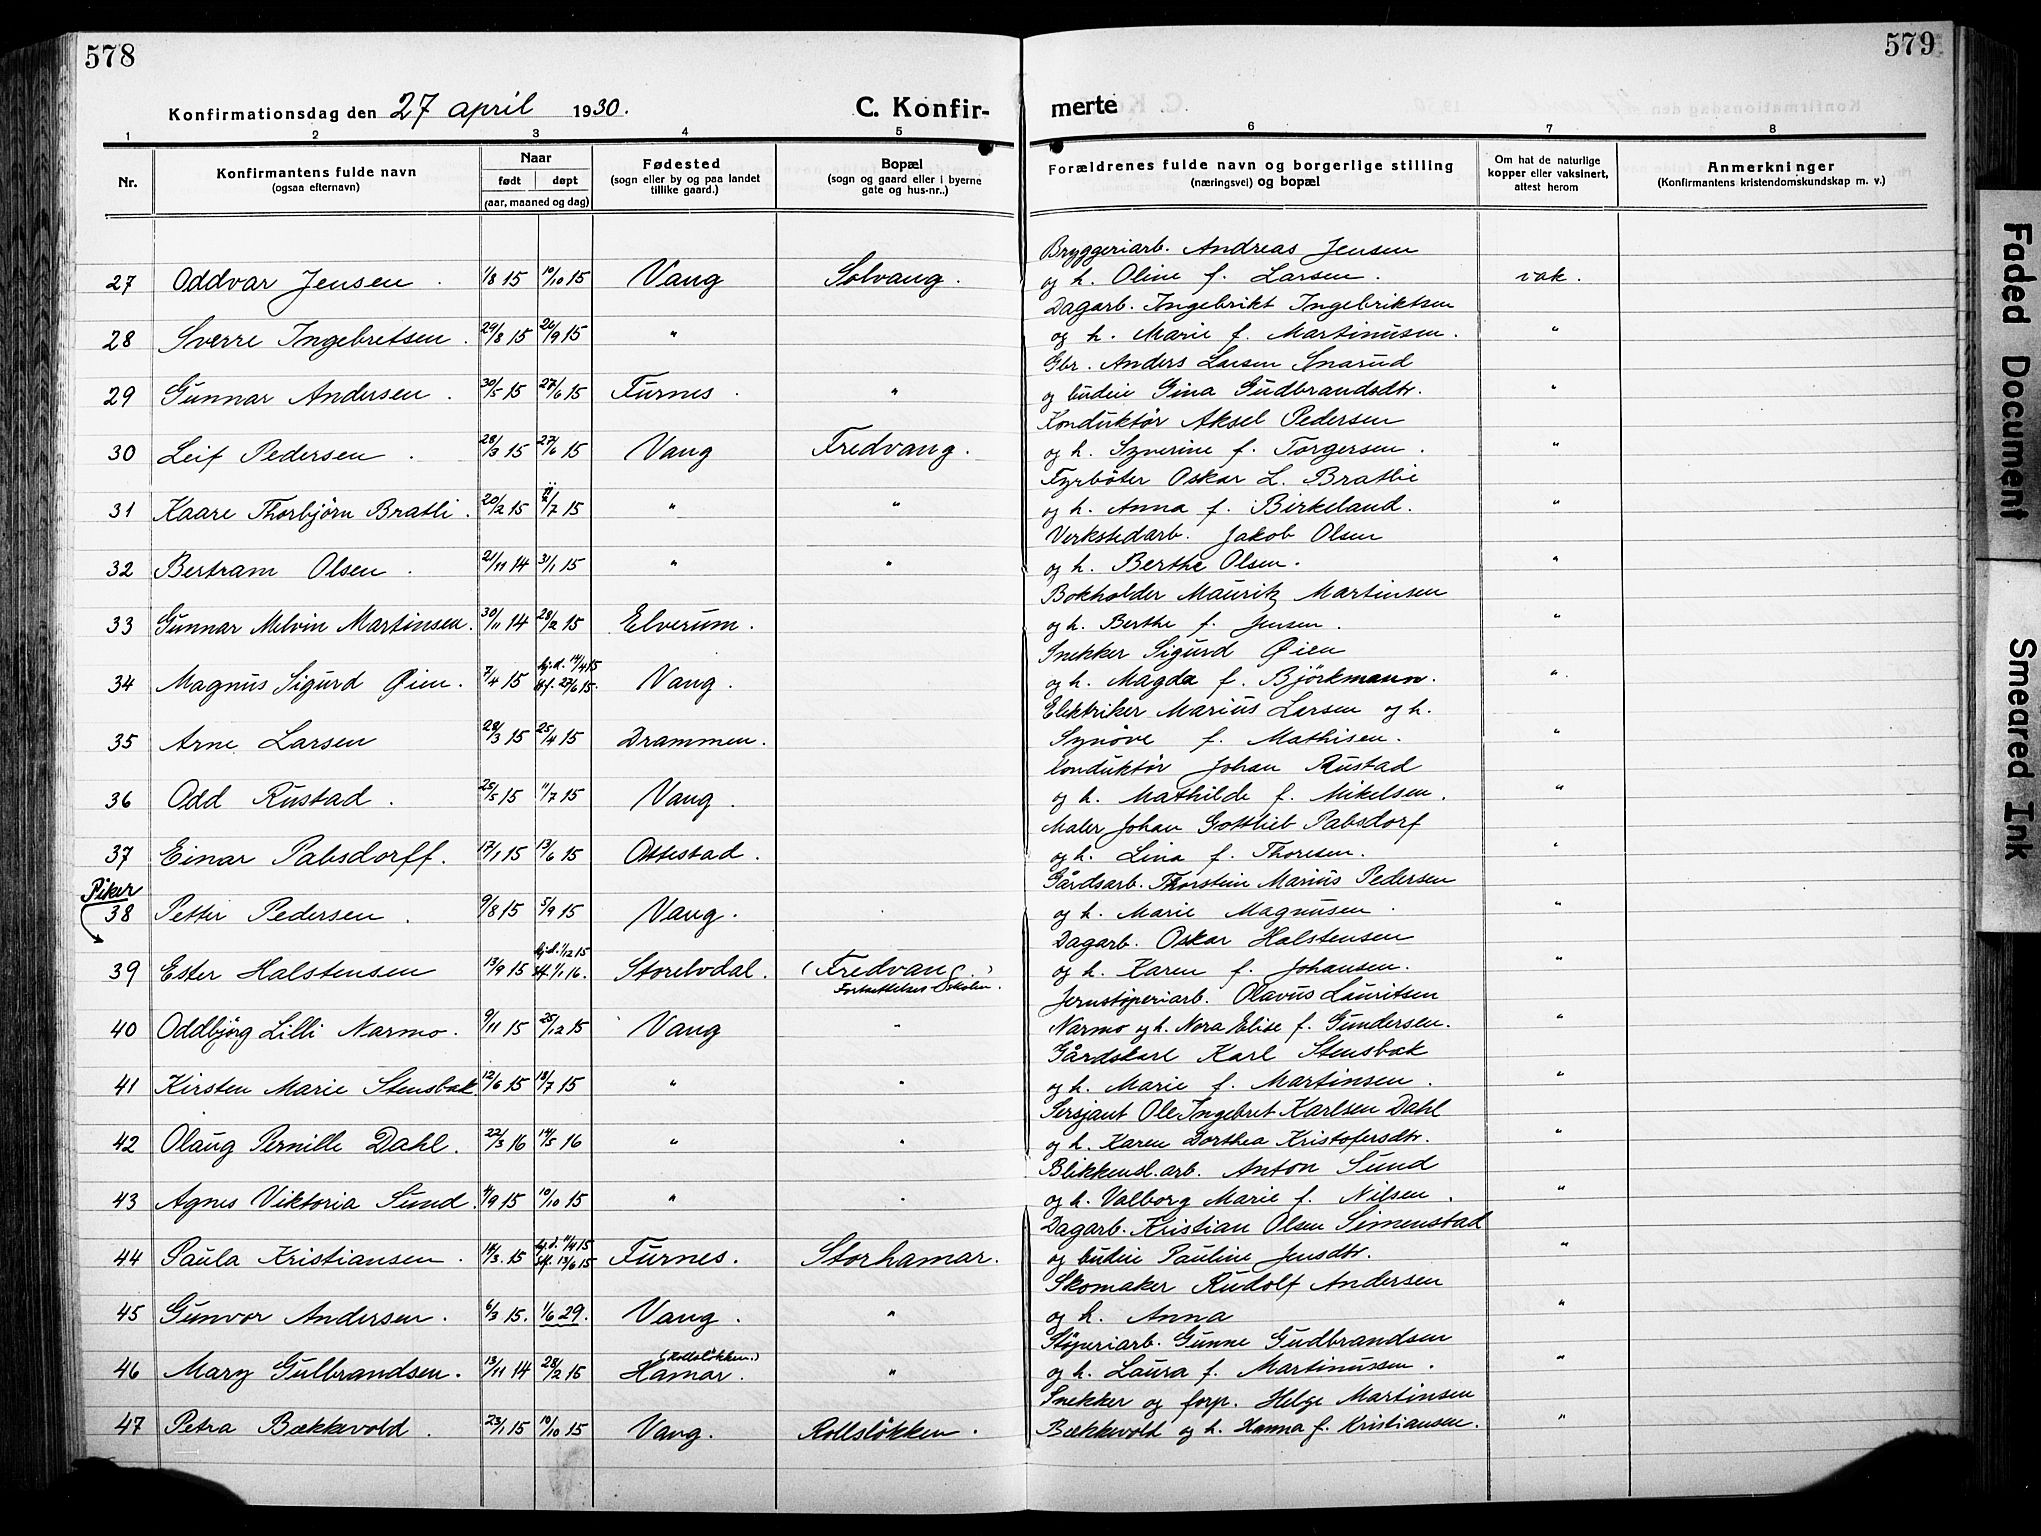 578
579
Konfirmationsdag den 27 april 1930.
C. Konfir-
merte
1 2 3 4 5 6 7 8
Nr.
Konfirmantens fulde navn
(ogsaa efternavn)
Naar
født døpt
(aar, maaned og dag)
Fødested
(sogn eller by og paa landet
tillike gaard.)
Bopæl
(sogn og gaard eller i byerne
gate og hus-nr..)
Forældrenes fulde navn og borgerlige stilling
(næringsvei) og bopæl
Om hat de naturlige
kopper eller vaksinert,
attest herom
Anmerkninger
(Konfirmantens kristendomskundskap m. v.)
Bryggeriarb. Andreas Jensen
27 Oddvar Jensen. 1/8 15 10/10 15 Vang Solvang. og h. Oline f. Larsen. vak.
Dagarb. Ingebrikt Ingebriktsen
28 Sverre Ingebretsen. 29/8 15 26/9 15 " og h. Marie f. Martinusen. "
Gbr. Anders Larsen Snarud
29 Gunnar Andersen. 30/5 15 27/6 15 Furnes. " og budeie Gina Gudbrandsdtr. "
Konduktör Aksel Pedersen
30 Leif Pedersen. 28/3 15 27/6 15 Vang Fredvang. og h. Syverine f. Torgersen. "
Fyrböter Oskar L. Bratlie
31 Kaare Thorbjørn Bratli. 20/2 15 11/7 15 " " og h. Anna f. Birkeland. "
Verkstedarb. Jakob Olsen
32 Bertram Olsen. 21/11 14 3/1 15 " " og h. Berthe Olsen. "
Bokholder Mauritz Martinsen
33 Gunnar Melvin Martinsen. 30/11 14 28/2 15 Elverum. og h. Berthe f. Jensen. "
Snekker Sigurd Øien
34 Magnus Sigurd Øien. 7/4 15 hj.d. 14/4 15 stf. 27/6 15. Vang. og h. Magda f. Björkmann. "
Elektriker Marius Larsen og h.
35 Arne Larsen 28/3 15 25/4 15 Drammen. Synöve f. Mathisen. "
Konduktör Johan Rustad
36 Odd Rustad. 25/5 15 11/7 15 Vang. og h. Mathilde f. Mikelsen. "
Maler Johan Gottlieb Pabsdorf
37 Einar Pabsdorff. 17/1 15 13/6 15 Ottestad. og h. Lina f. Thoresen. "
Piker
Gårdsarb. Thorstein Marius Pedersen
38 Petter Pedersen. 9/8 15 5/9 15 Vang. og h. Marie Magnusen. "
Dagarb. Oskar Halstensen
39 Ester Halstensen 13/9 15 hj.d. 1/12 15 stf. 1/1 16. Storelvdal. (Fredvang.) og h. Karen f. Johansen. "
Fortsettelses Skolen.
Jernstøperiarb. Olavus Lauritsen
40 Oddbjörg Lilli Narmo. 9/11 15 25/12 15 Vang " Narmo og h. Nora Elise f. Gundersen. "
Gårdskarl Karl Stensbak
41 Kirsten Marie Stensbak. 12/6 15 18/7 15 " " og h. Marie f. Martinsen. "
Sersjant Ole Ingebret Karlsen Dahl
42 Olaug Pernille Dahl. 22/3 16 14/5 16 " " og h. Karen Dorthea Kristofersdtr. "
Blikkensl. arb. Anton Sund
43 Agnes Viktoria Sund. 4/9 15 10/10 15 " " og h. Valborg Marie f. Nilsen. "
Dagarb. Kristian Olsen Simenstad
44 Paula Kristiansen. 14/3. 15 hj.d. 11/4 15 stf. 13/6 15 Furnes. Storhamar. og budeie Pauline Jensdtr. "
Skomaker Rudolf Andersen
45 Gunvor Andersen. 6/3 15. 1/6 29. Vang. " og h. Anna "
Støperiarb. Gunne Gudbrandsen
(Rollsløkken.)
46 Mary Gulbrandsen. 13/11 14 28/2 15 Hamar. " og h. Laura f. Martinussen. "
Snekker og forp. Helge Martinsen
47 Petra Bækkevold. 23/1 15 10/10 15 Vang. Rollsløkken. Bækkevold og h. Hanna f. Kristiansen. "
Faded Document
Smeared Ink